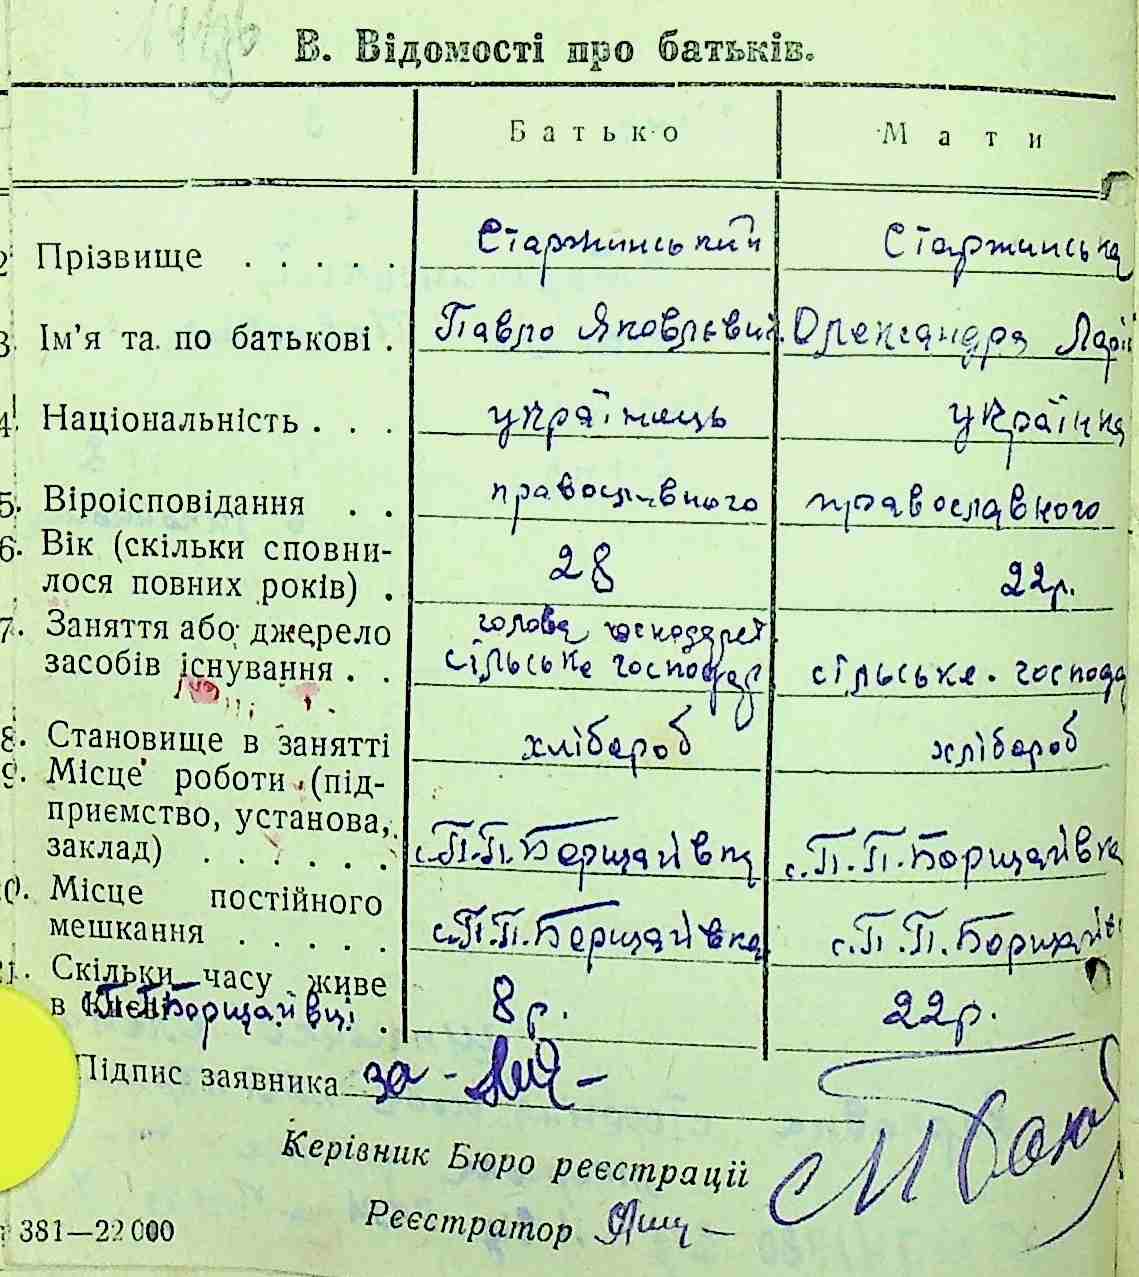 В. Відомості про батьків.
Батько Мати
2 Прізвище . . . . . Старжинський Старжинська
3 Ім'я та по батькові . Павло Яковлєвич. Олександра Ларі
4. Національність . . . українець українка
5. Віроісповідання . . православного православного
6. Вік (скільки сповни-
лося повних років) . 28 22р.
7. Заняття або джерело голова господарст
засобів існування . . сільське господар сільське. господа
8. Становище в занятті хлібароб хлібароб
9. Місце роботи (під-
приємство, установа,
заклад) . . . . . . с.П.П.Борщагівка с.П.П.Борщагівка
0. Місце постійного
мешкання . . . . . с.П.П.Борщагівка с.П.П.Борщагів
1. Скільки часу живе
в Києві П.П.Борщагівці . 8р. 22р.
Підпис заявника за -
Керівник Бюро реєстрації
Реєстратор
381—22 000